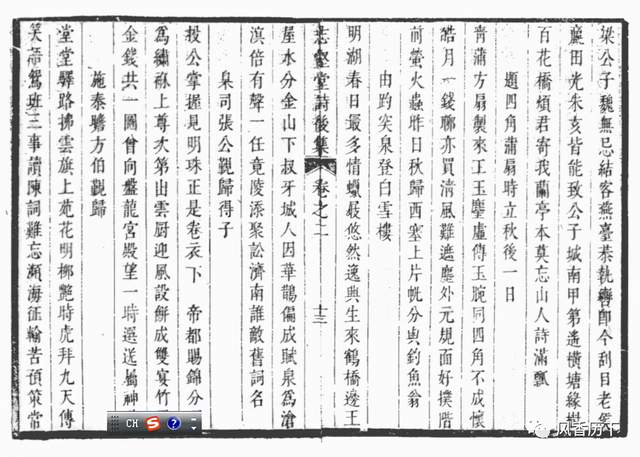 梁公子魏無忌結客燕臺慕執轡卽今刮目老
田光朱亥皆能致公子城南甲第遙橫塘綠樹
百花橋煩君寄我蘭亭本莫忘山人詩滿瓢
題四角蒲扇時立秋後一日
青蒲方扇製來工玉塵虛傳玉腕同四角不成懷
皓月一錢聊亦買清風難遮塵外元規面好撲階
前螢火蟲昨日秋歸西塞上片帆分與釣魚翁
由趵突泉登白雪樓
明湖春日最多情蠟屐悠然逸興生來鶴橋邊王
志壑堂詩後集 卷之二 十三
屋水分金山下叔牙城人因華鵲偏成賦泉爲滄
溟倍有聲一任竟陵添聚訟濟南誰敵舊詞名
臬司張公覲歸得子
投公掌握見明珠正是卷衣下 帝都賜錦分
爲繡褓上尊大第山雲厨迎風設餅成雙宴竹
金錢共一圖曾向盤龍宮殿望一時選送屬神
施泰瞻方伯覲歸
堂堂驛路拂雲旗上苑花明柳艷時虎拜九天傳
笑語鴛班三事讀陳詞難忘瀕海征輸苦預策常
CH S ?
风香历下